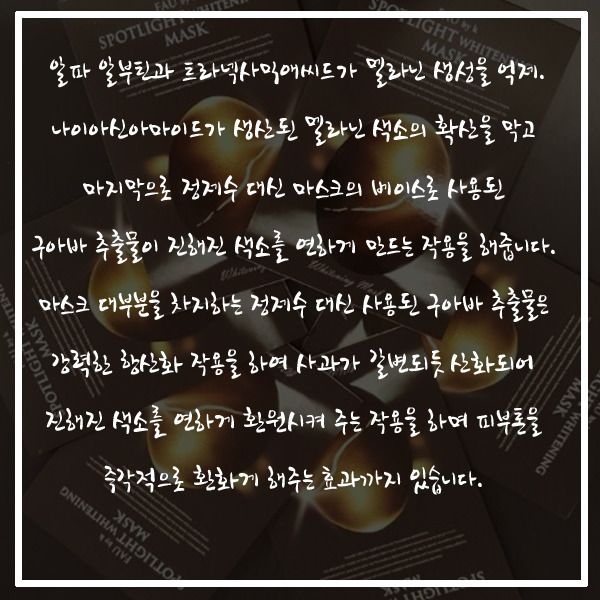 FAU by k
SPOTLIGHT WHITENING
MASK
SPOTLIGHT WHITENING
MASK
알파 알부틴과 트라넥사믹애씨드가 멜라닌 생성을 억제.
나이아신아마이드가 생산된 멜라닌 색소의 확산을 막고
마지막으로 정제수 대신 마스크의 베이스로 사용된
구아바 추출물이 진해진 색소를 연하게 만드는 작용을 해줍니다.
마스크 대부분을 차지하는 정제수 대신 사용된 구아바 추출물은
강력한 항산화 작용을 하여 사과가 갈변되듯 산화되어
진해진 색소를 연하게 환원시켜 주는 작용을 하며 피부톤을
즉각적으로 환하게 해주는 효과까지 있습니다.
FAU by k
SPOTLIGHT WHITENING
MASK